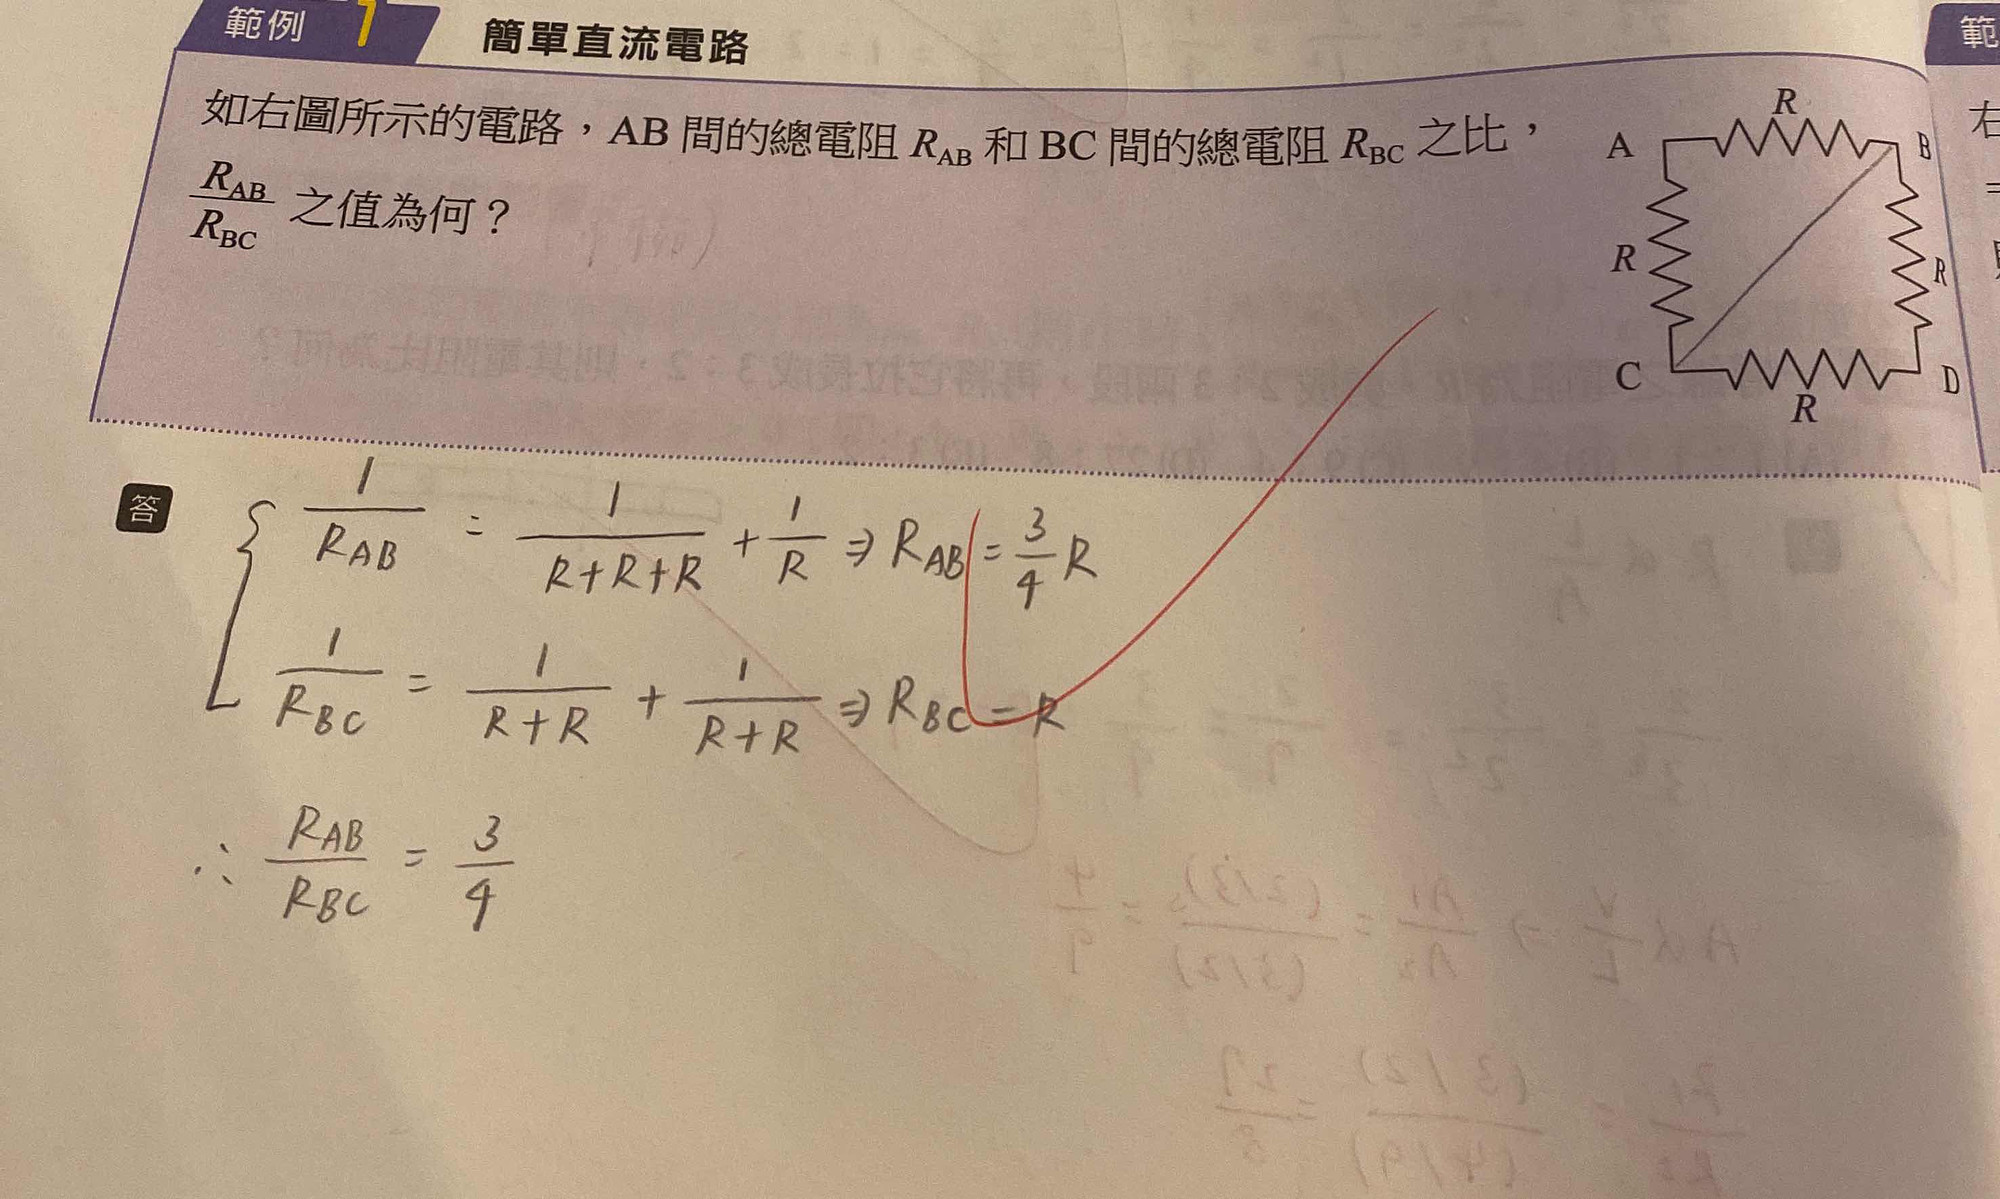 範例 1 簡單直流電路
如右圖所示的電路，AB 間的總電阻 R_AB 和 BC 間的總電阻 R_BC 之比，
R_AB/R_BC 之值為何？
A R B
R R
C R D
範
右
答 { 1/R_AB = 1/(R+R+R) + 1/R ⇒ R_AB = 3/4 R
1/R_BC = 1/(R+R) + 1/(R+R) ⇒ R_BC = R
∴ R_AB/R_BC = 3/4